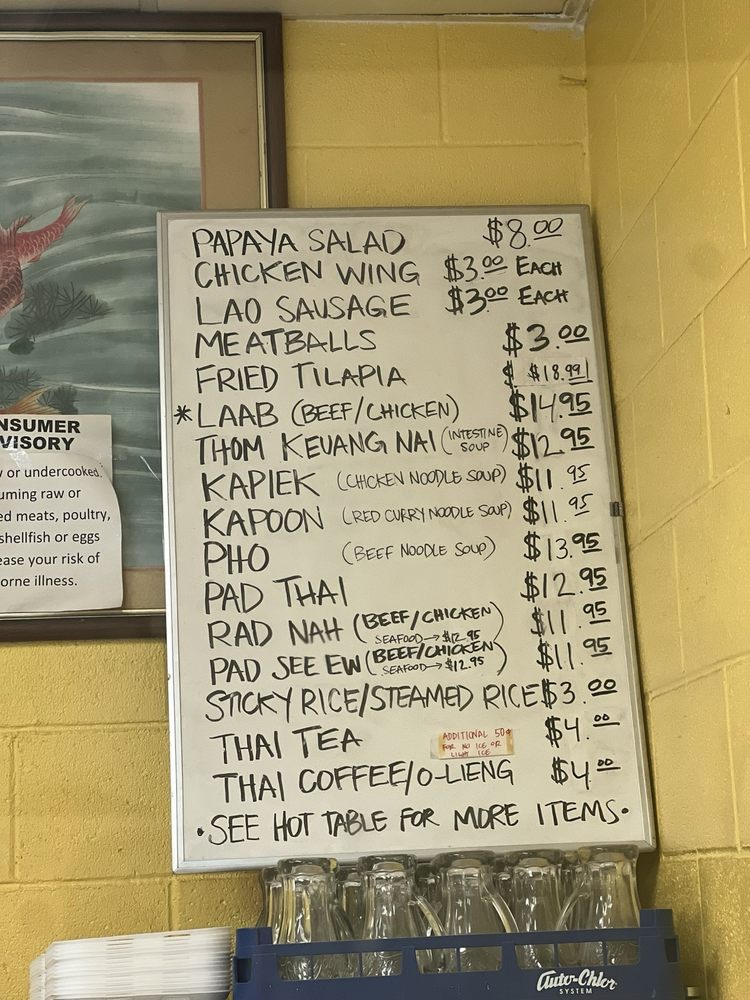 PAPAYA SALAD $8.00
CHICKEN WING $3.00 EACH
LAO SAUSAGE $3.00 EACH
MEATBALLS $3.00
FRIED TILAPIA $ $18.99
*LAAB (BEEF/CHICKEN) $14.95
THOM KEUANG NAI (INTESTINE SOUP) $12.95
KAPIEK (CHICKEN NOODLE SOUP) $11.95
KAPOON (RED CURRY NOODLE SOUP) $11.95
PHO (BEEF NOODLE SOUP) $13.95
PAD THAI $12.95
RAD NAH (BEEF/CHICKEN) $11.95
SEAFOOD→$12.95
PAD SEE EW (BEEF/CHICKEN) $11.95
SEAFOOD→$12.95
STICKY RICE/STEAMED RICE $3.00
THAI TEA $4.00
ADDITIONAL 50¢
FOR NO ICE OR
LIGHT ICE
THAI COFFEE/O-LIENG $4.00
•SEE HOT TABLE FOR MORE ITEMS•
NSUMER
VISORY
w or undercooked.
uming raw or
ed meats, poultry,
shellfish or eggs
ease your risk of
orne illness.
Auto-Chlor
SYSTEM